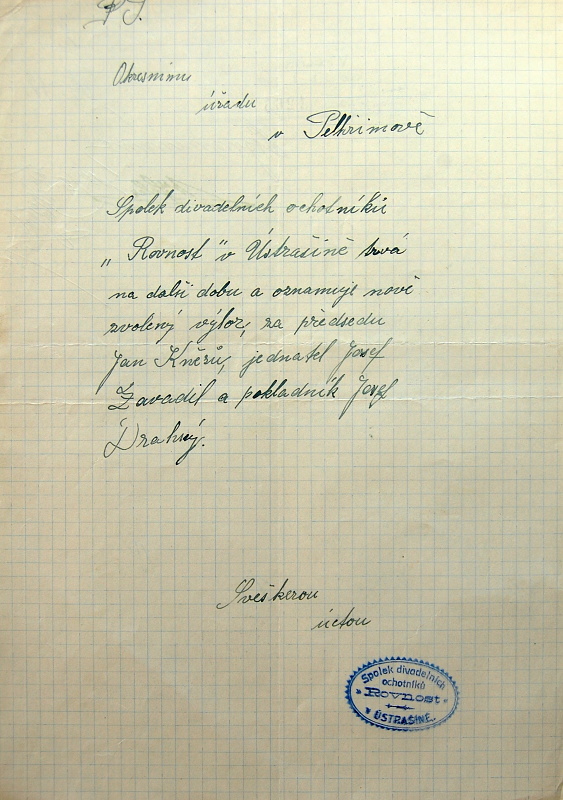 P.T.
Okresnímu
úřadu
v Pelhřimově
Spolek divadelních ochotníků
„Rovnost" v Ústrašíně trvá
na další dobu a oznamuje nově
zvolený výbor, za předsedu
Jan Knězů, jednatel Josef
Zavadil a pokladník Josef
Drahný.
Sveškerou
úctou
Spolek divadelních
ochotníků
Rovnost
v ÚSTRAŠÍNĚ.